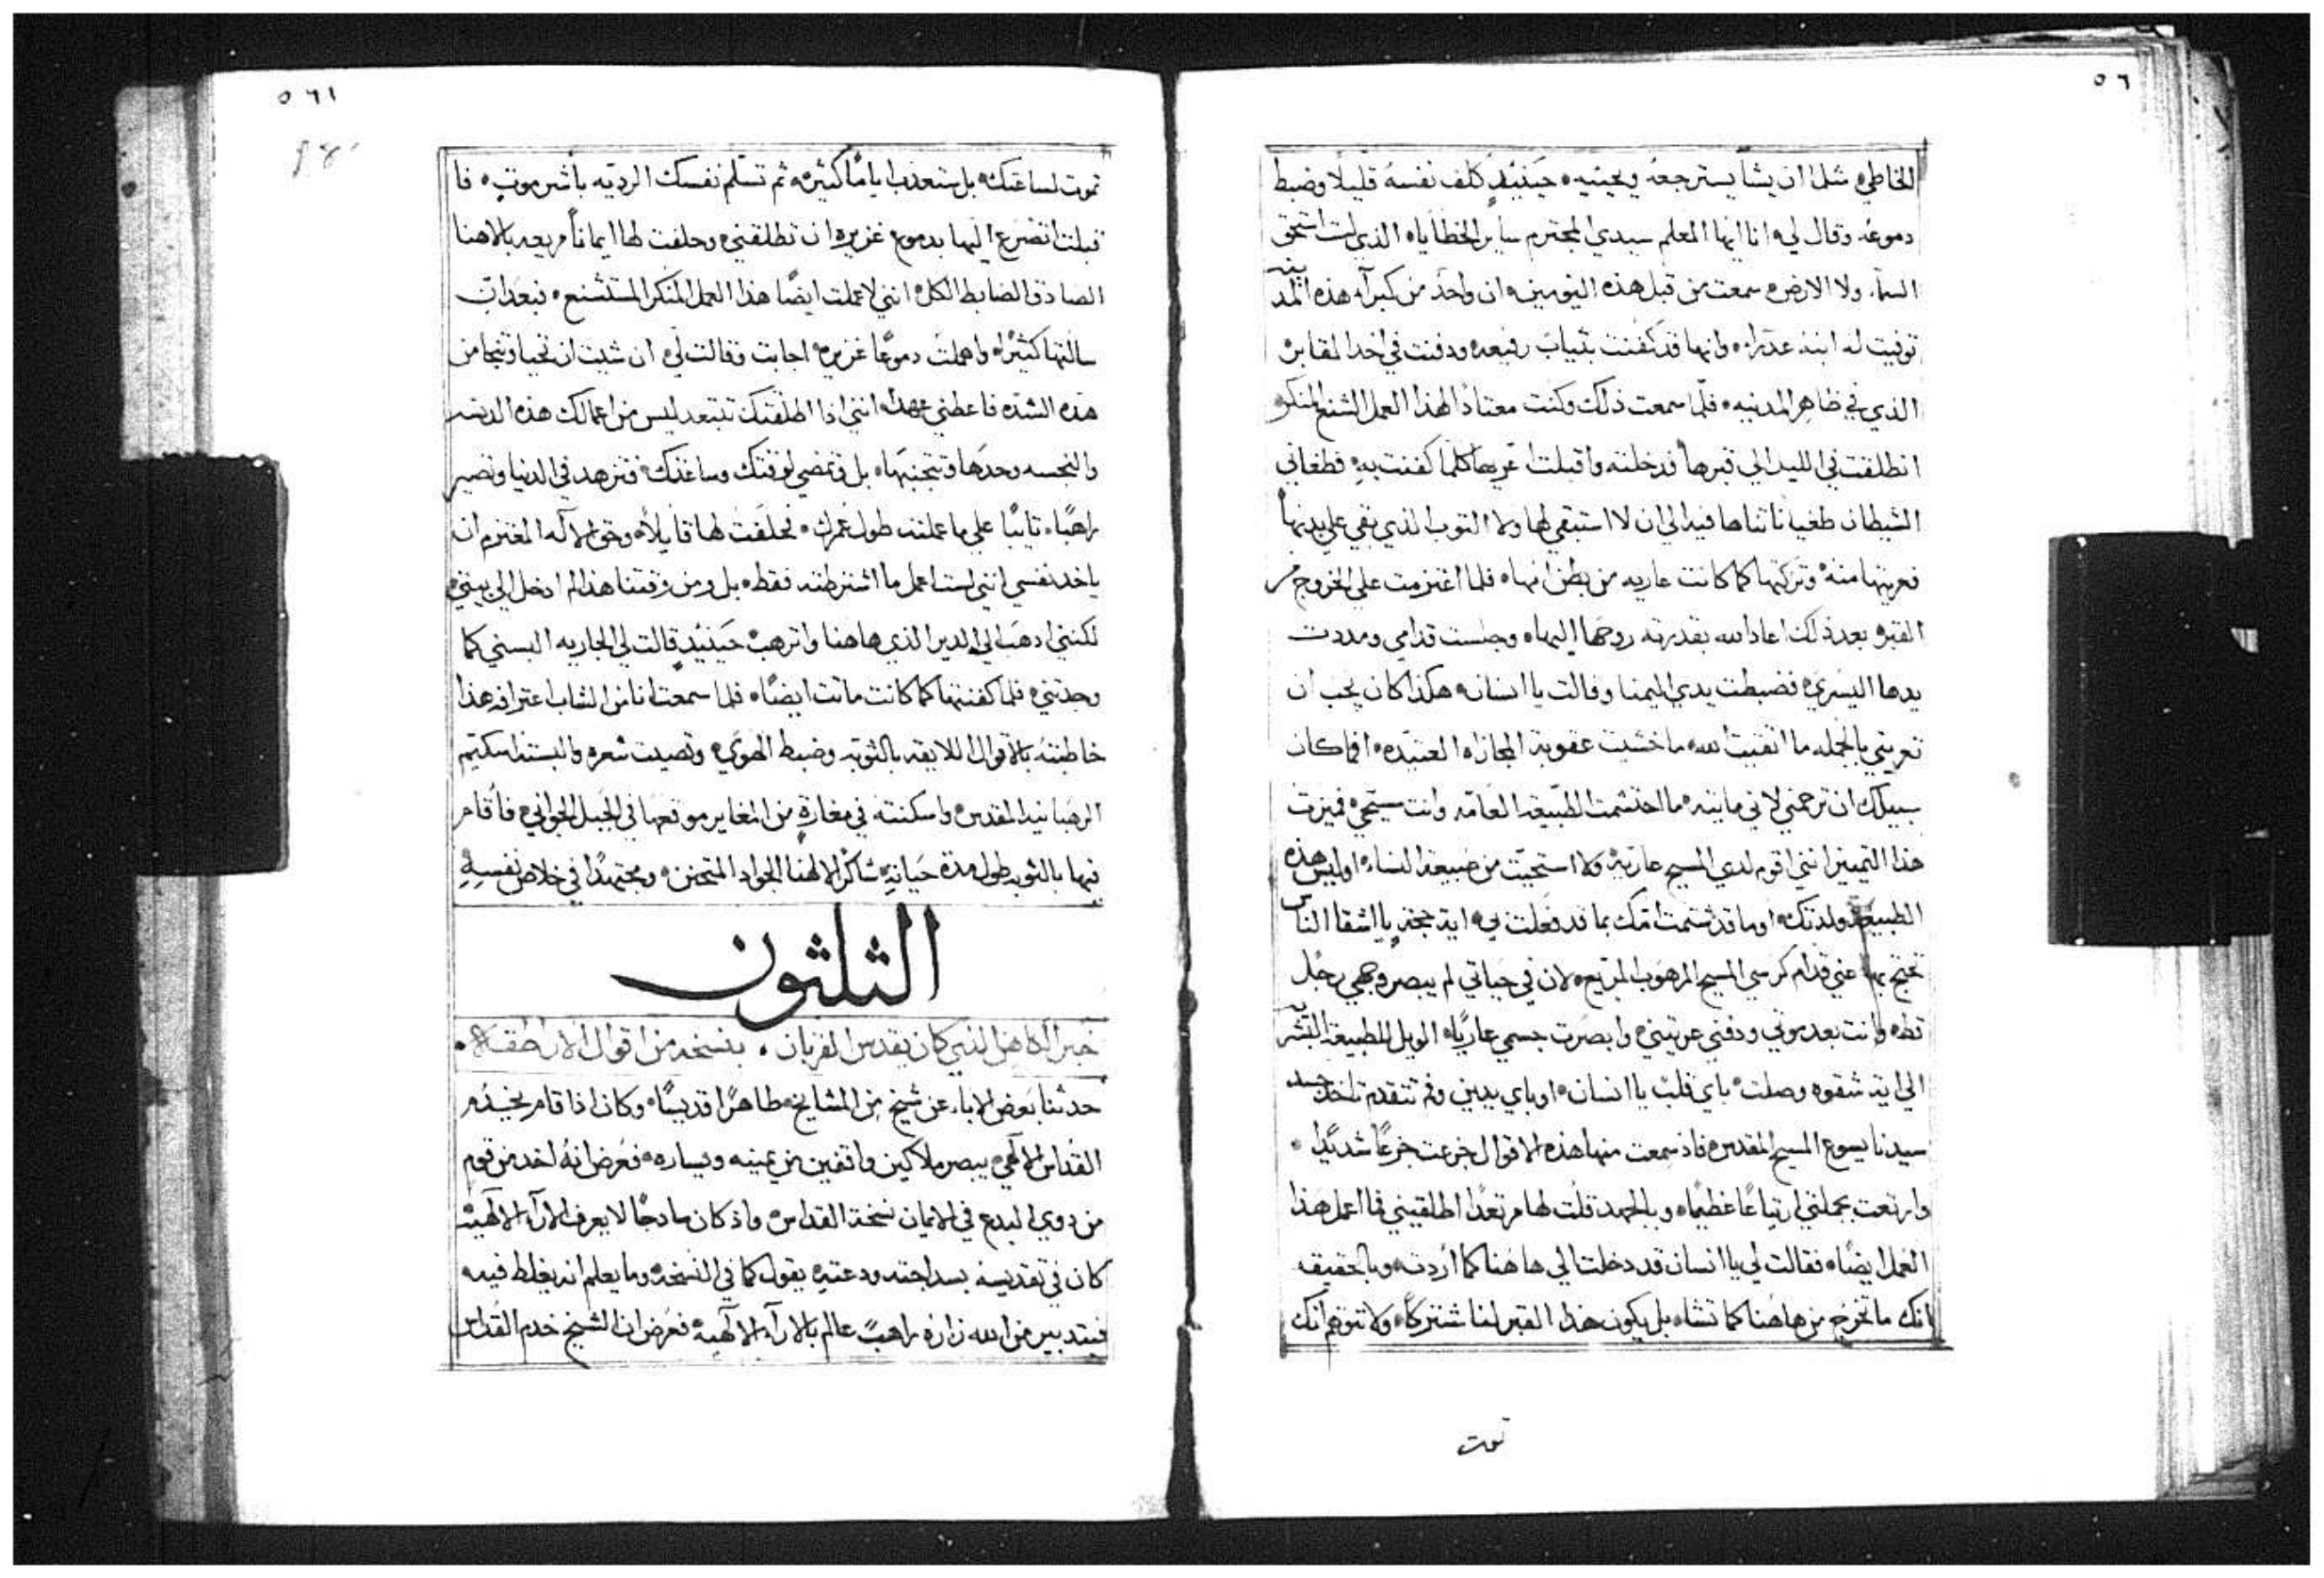 ٥٦
الخاطي مثل ان يشا يسترجعه ويحييه حينيذٍ كلف نفسه قليلًا وضبط
دموعه وقال لي انا ايها المعلم سيدي المحترم ساير الخطاياه الذي لست استحق
السما ولا الارض سمعت من قبل هذه اليومين ان واحد من كبرآ هذه المدينه
توفيت له ابنه عدراه وانها قد كفنت بثياب رفيعه ودفنت في احد المقابر
الذي في ظاهر المدينه فلما سمعت ذلك وكنت معتادًا لهذا العمل الشنع المنكر
انطلقت في الليل الي قبرها فدخلته واقبلت اعريها كلما كفنت به فطغاني
الشيطان طغيانًا تناها فيه الي ان لا استبقي لها ولا التوب الذي بقي علي بدنها
فعريتها منه وتركتها كما كانت عاريه من بطن امها فلما اعتزمت علي الخروج من
القبر بعد ذلك اعاد الله بقدرته روحها اليها وجلست قدامي ومددت
يدها اليسري فضبطت يدي اليمنا وقالت يا انسان هكذا كان يجب ان
تعريني بالجمله ما اتقيت الله ما خشيت عقوبة المجازاه العتيده افما كان
سبيلك ان ترحمني لاني مايته ما احتشمت الطبيعه العامه وانت مسيحي فميزت
هذا التمييز انني اقوم لدي المسيح عاريه ولا استحيت من طبيعة النساء اوليس هذه
الطبيعه ولدتك اوما قد شتمت امك بما قد فعلت بي اية حجة يا اشقا الناس
تحتج بها عني قدام كرسي المسيح المرهوب المريع لان في حياتي لم يبصر وجهي رجل
قط وانت بعد موتي ودفني عريتني وابصرت جسمي عاريًا الويل للطبيعة البشريه
الي اية شقوه وصلت باي قلب يا انسان او باي يدين وفم تتقدم تاخد جسد
سيدنا يسوع المسيح المقدس فاذ سمعت منها هذه الاقوال جزعت جزعًا شديدًا
وارتعت بجملتي ارتياعًا عظيمًا وبالجهد قلت لها مرتعدًا اطلقيني فما اعمل هذا
العمل ايضًا فقالت لي يا انسان قد دخلت الي هاهنا كما اردت وبالحقيقه
انك ما تخرج من هاهنا كما تشاء بل يكون هذا القبر لنا مشتركًا ولا تتوهم انك
تموت
٥٦١
تموت لساعتك بل ستعذب ايامًا كثيره ثم تسلم نفسك الرديه باشر موته فا
قبلت اتضرع اليها بدموع غزيره ان تطلقني وحلفت لها ايمانًا مريعه بالاهنا
الصادق الضابط الكل انني لا عملت ايضًا هذا العمل المنكر المستشنع فبعد ان
سالتها كثيرًا واهملت دموعًا غزيره اجابت وقالت لي ان شيت ان تحيا وتنجا من
هذه الشده فاعطني عهدًا انني اذا اطلقتك تبتعد ليس من اعمالك هذه الدنسه
والنجسه وحدها وتتجنبها بل وتمضي لوقتك وساعتك فتزهد في الدنيا وتصير
راهبًا تايبًا علي ما عملته طول عمرك فحلفت لها قايلًا وحق الاله المعتزم ان
ياخد نفسي انني لست اعمل ما اشترطته فقط بل ومن وقتنا هذا لم ادخل الي بيتي
لكنني ادهب الي الدير الذي هاهنا واترهب حينيذ قالت لي الجاريه البسني كما
وجدتني فلما كفنتها كما كانت ماتت ايضًا فلما سمعت انا من الشاب اعترافه هذا
خاطبته بالاقوال اللايقه بالتوبه وضبط الهوي وقصيت شعره والبسته اسكيم
الرهبانيه المقدس واسكنته في مغارة من المغاير موقعها في الجبل الجواني فاقام
فيها بالتوبه طول مدة حياته شاكرًا لالهنا الجواد المتحنن ومجتهدًا في خلاص نفسه
الثلثون
خبر الكاهن الذي كان يقدس القربان بنسخه من اقوال الاراطقه
حدثنا بعض الاباء عن شيخ من المشايخ طاهرًا قديسًا وكان اذا قام يخدم
القداس الالهي يبصر ملاكين واقفين من يمينه ويساره فعرض انه اخد من قوم
من دوي البدع في الايمان نسخة القداس واذ كان سادجًا لا يعرف الارآ الالهيه
كان في تقديسه بسداجته ودعته يقول كما في النسخه وما يعلم انه يغلط فيه
فبتدبير من الله زاره راهبٌ عالم بالارآ الالهيه فعرض ان الشيخ خدم القداس